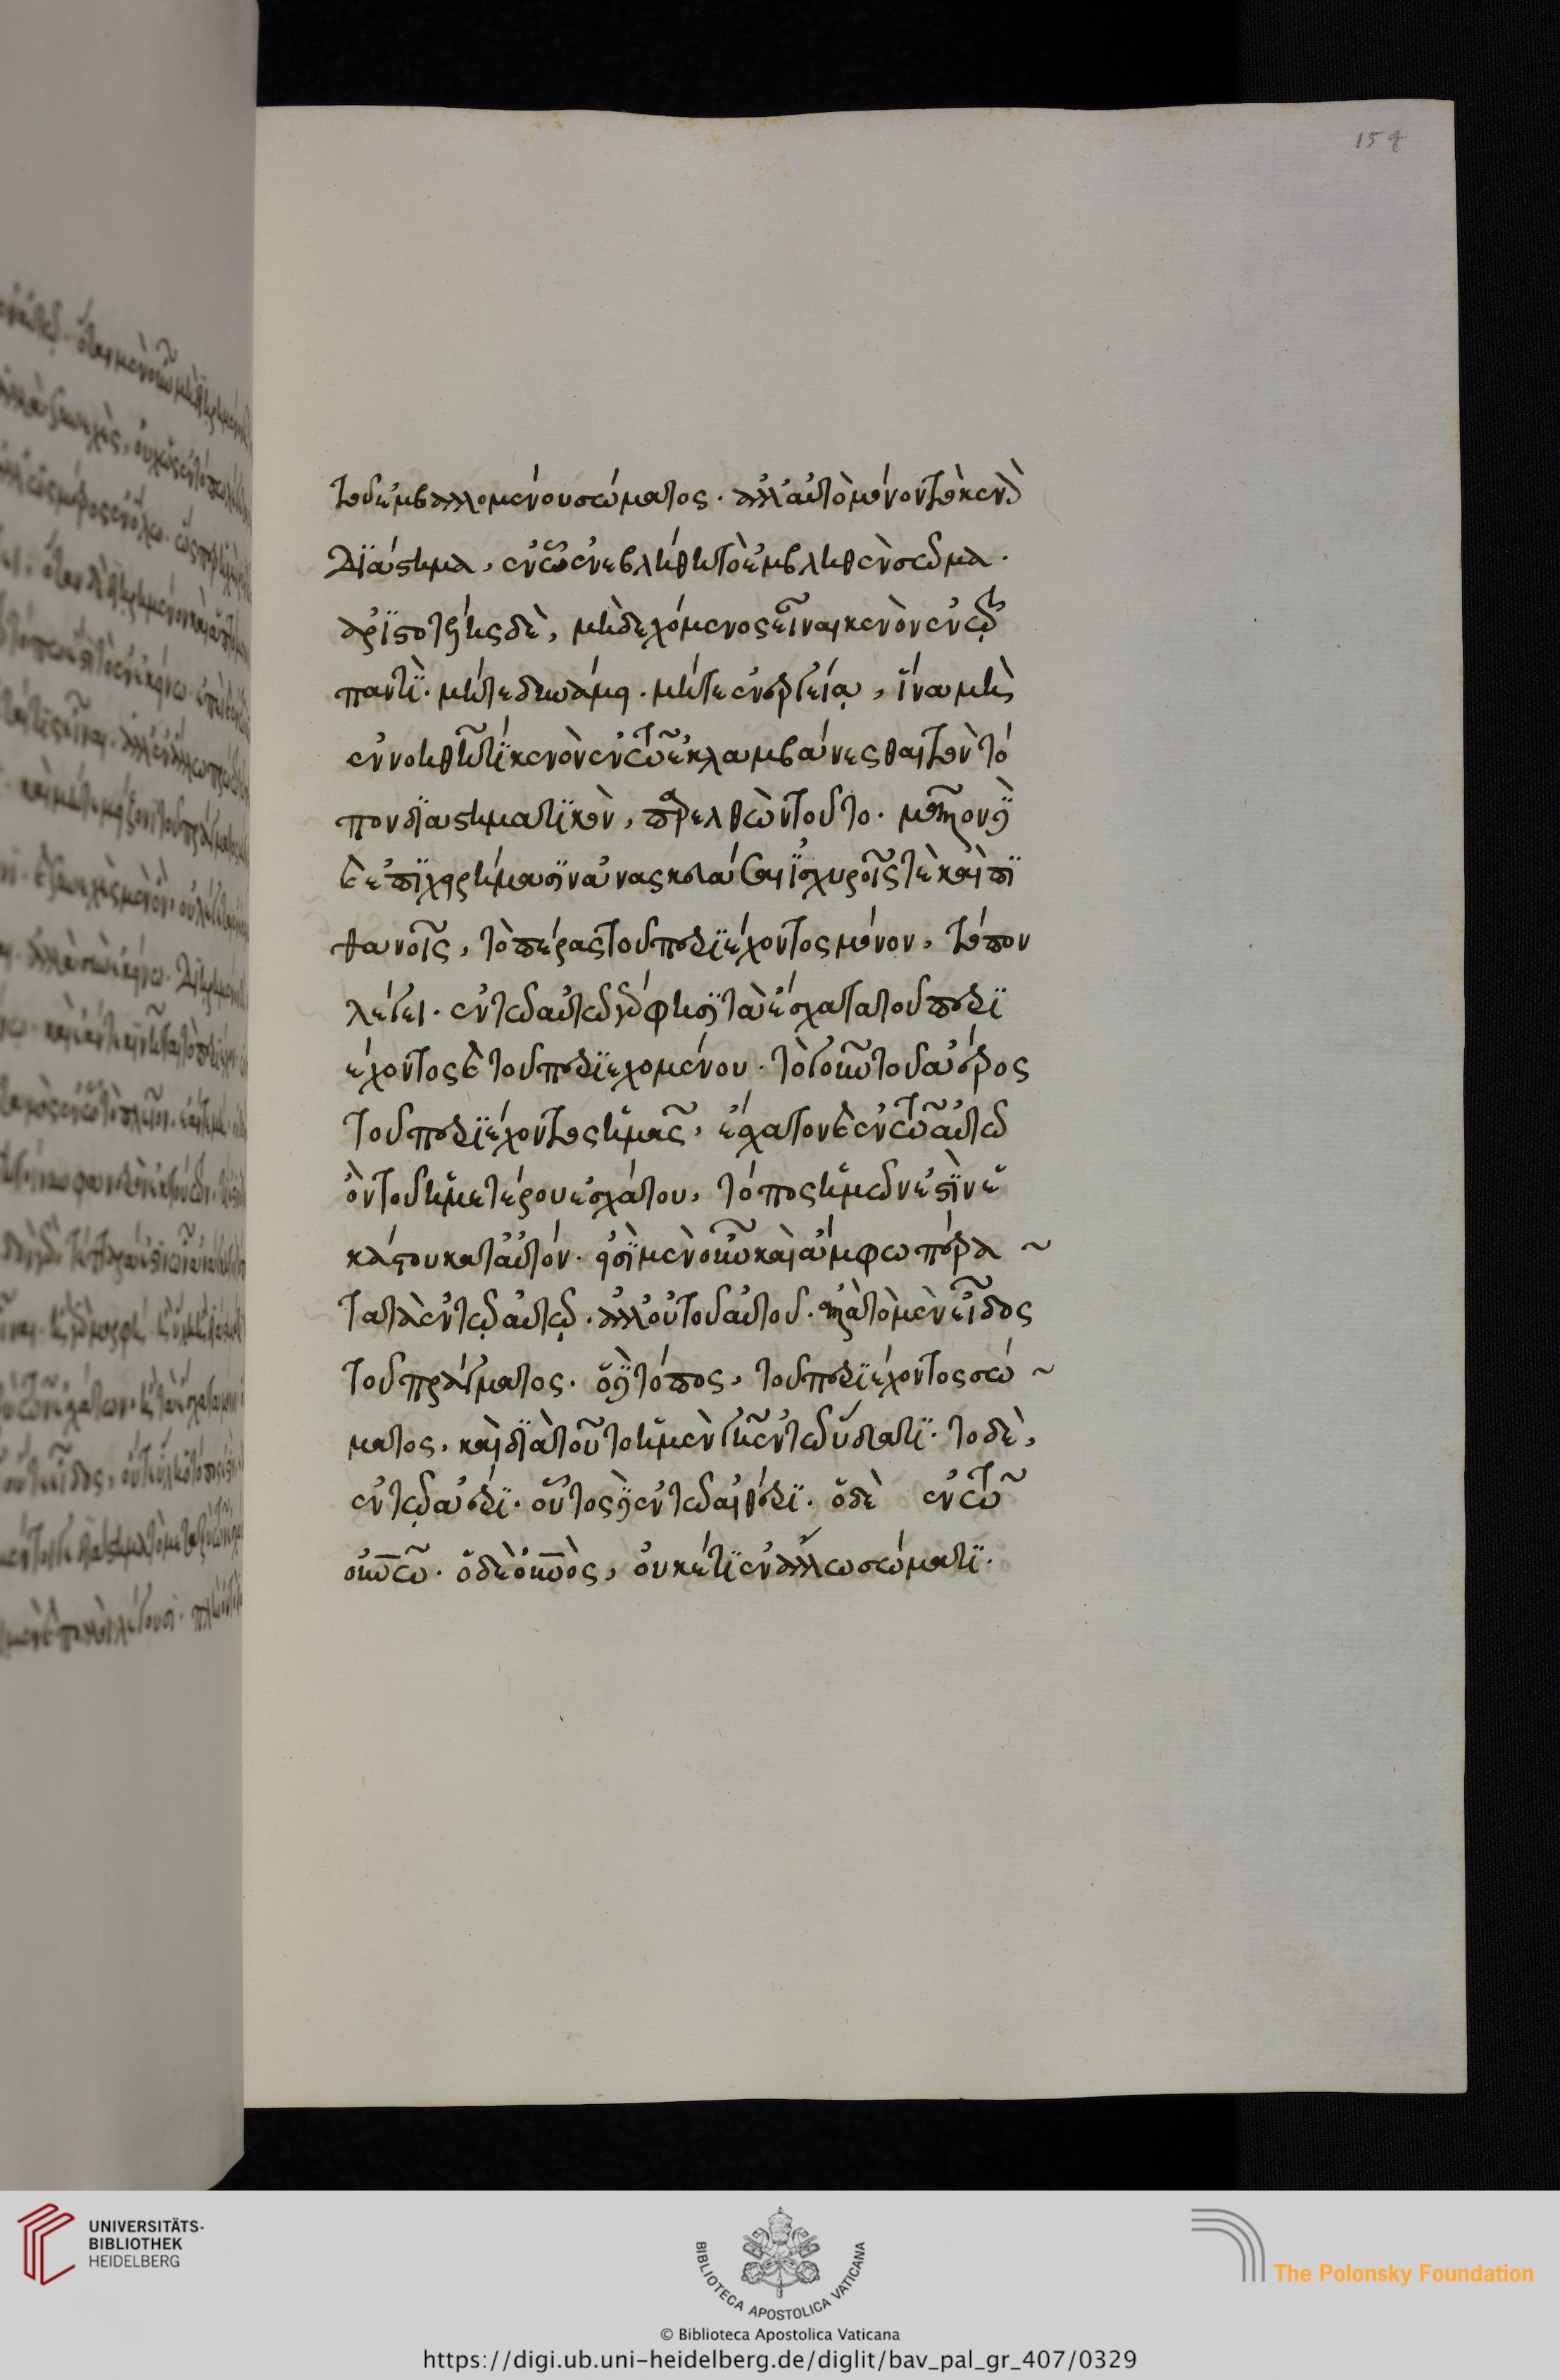 τοῦ ἐμβαλλομένου σώματος. ἀλλ' αὐτὸ μόνον τὸ κενὸ
διάστημα, ἐν ᾧ ἐνεβλήθη τὸ ἐμβληθὲν σῶμα.
ἀριστοτέλης δὲ, μὴ δεχόμενος εἶναι κενὸν ἐν τῷ
παντί. μήτε δυνάμει. μήτε ἐνεργείᾳ, ἵνα μὴ
ἐννοηθῇ τι κενὸν ἐν τῷ ἐκλαμβάνεσθαι τὸν τό
πον διαστηματικὸν, παρελθὼν τοῦτο. μᾶλλον δὲ
καὶ ἐπιχειρήμασιν ἀνασκευάσας ἰσχυροῖς τὲ καὶ πι
θανοῖς, τὸ πέρας τοῦ περιέχοντος μόνον, τόπον
λέγει. ἐν τῶ αὐτῶ γάρ φησι τὰ ἔσχατα τοῦ περι
έχοντος καὶ τοῦ περιεχομένου. τὸ γοῦν τοῦ ἀέρος
τοῦ περιέχοντος ἡμᾶς, ἔσχατον καὶ ἐν τῶ αὐτῶ
ὂν τοῦ ἡμετέρου ἐσχάτου, τόπος ἡμῶν ἐστὶν ἑ
κάστου κατ' αὐτόν. εἰσὶ μὲν οὖν καὶ ἄμφω πέρα ~
τα τὰ ἐν τῷ αὐτῷ. ἀλλ' οὐ τοῦ αὐτοῦ. ἀλλὰ τὸ μὲν εἶδος
τοῦ πράγματος. ὁ δὲ τόπος, τοῦ περιέχοντος σώ ~
ματος. καὶ διὰ τοῦτο ἡ μὲν γῆ ἐν τῶ ὕδατι. τὸ δὲ,
ἐν τῷ ἀέρι. οὗτος δὲ ἐν τῶ αἰθέρι. ὁ δὲ ἐν τῶ
οὐνῶ. ὁ δὲ οὐνὸς, οὐκέτι ἐν ἄλλω σώματι.
UNIVERSITÄTS-
BIBLIOTHEK
HEIDELBERG
BIBLIOTECA APOSTOLICA VATICANA
The Polonsky Foundation
© Biblioteca Apostolica Vaticana
https://digi.ub.uni-heidelberg.de/diglit/bav_pal_gr_407/0329